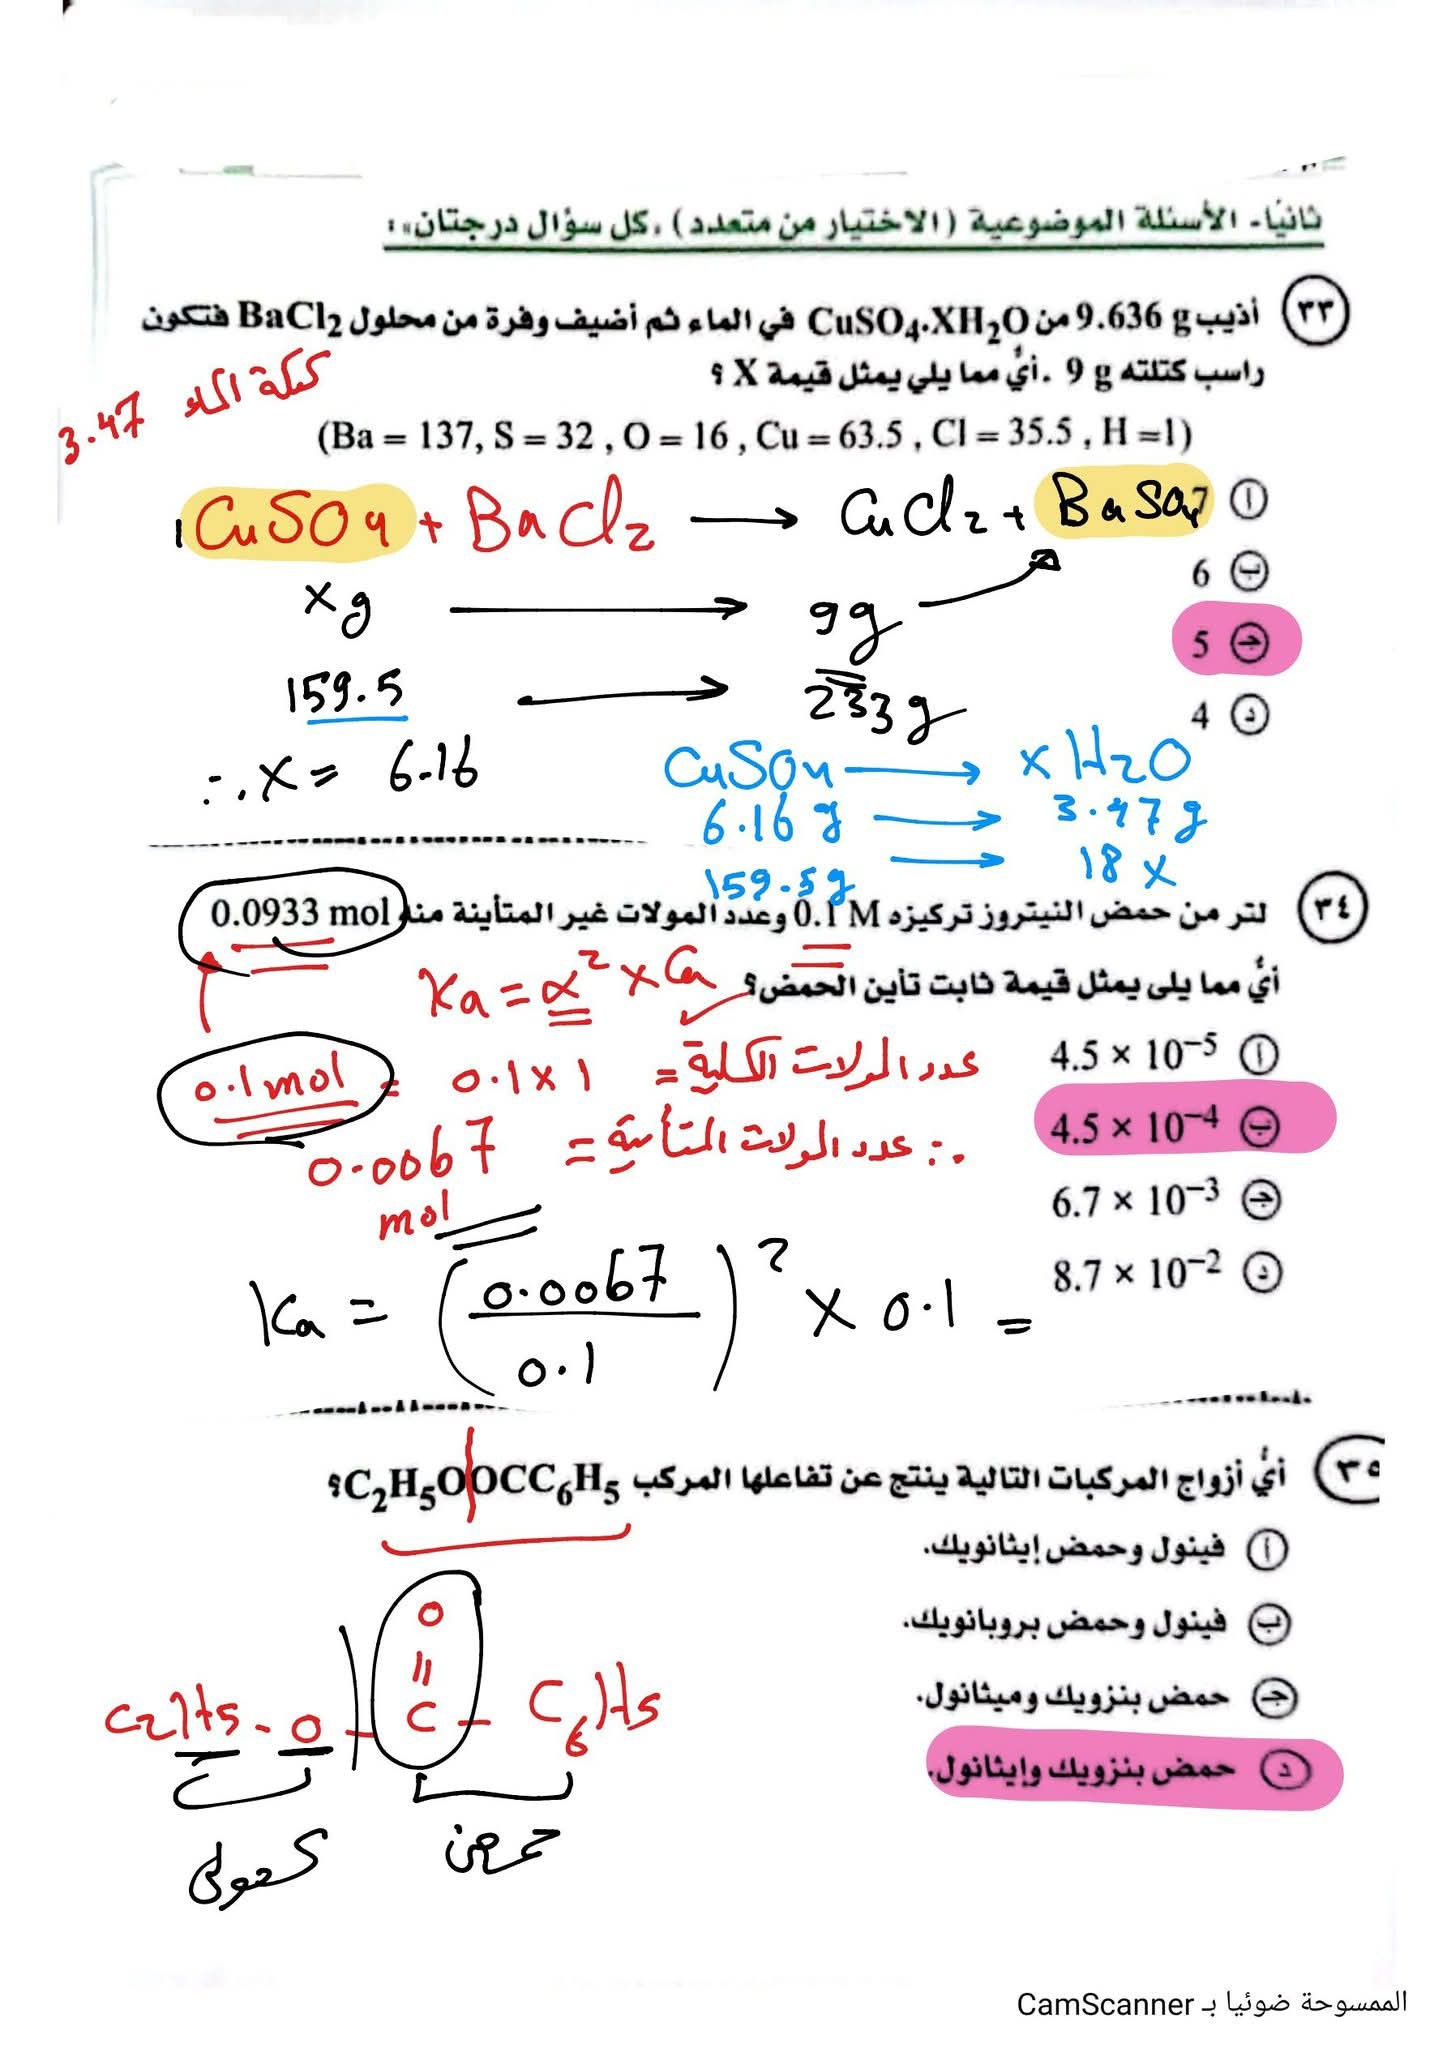 ثانيًا- الأسئلة الموضوعية (الاختيار من متعدد) ،كل سؤال درجتان»:
٣٣ أذيب 9.636 g من CuSO₄.XH₂O في الماء ثم أضيف وفرة من محلول BaCl₂ فتكون
راسب كتلته 9 g . أيُّ مما يلي يمثل قيمة X ؟
كتلة الماء 3.47
(Ba = 137, S = 32 , O = 16 , Cu = 63.5 , Cl = 35.5 , H =1)
أ 7
1 CuSO4 + BaCl2 → CuCl2 + BaSO4
ب 6
x g → 9g
ج 5
159.5 → 233 g
د 4
∴ x = 6.16
CuSO4 → x H2O
6.16 g → 3.47 g
159.5g → 18 x
٣٤ لتر من حمض النيتروز تركيزه 0.1 M وعدد المولات غير المتأينة منه 0.0933 mol
أيُّ مما يلى يمثل قيمة ثابت تأين الحمض؟
Ka = α² x Ca
أ 4.5 × 10⁻⁵
عدد المولات الكلية = 0.1 x 1 = 0.1 mol
ب 4.5 × 10⁻⁴
∴ عدد المولات المتأينة = 0.0067 mol
ج 6.7 × 10⁻³
د 8.7 × 10⁻²
Ka = (0.0067 / 0.1)² x 0.1 =
٣٥ أيُّ أزواج المركبات التالية ينتج عن تفاعلها المركب C₂H₅OOCC₆H₅؟
أ فينول وحمض إيثانويك.
ب فينول وحمض بروبانويك.
ج حمض بنزويك وميثانول.
د حمض بنزويك وإيثانول.
O
=
C2H5 - O - C - C6H5
كحولى
حمض
الممسوحة ضوئيا بـ CamScanner